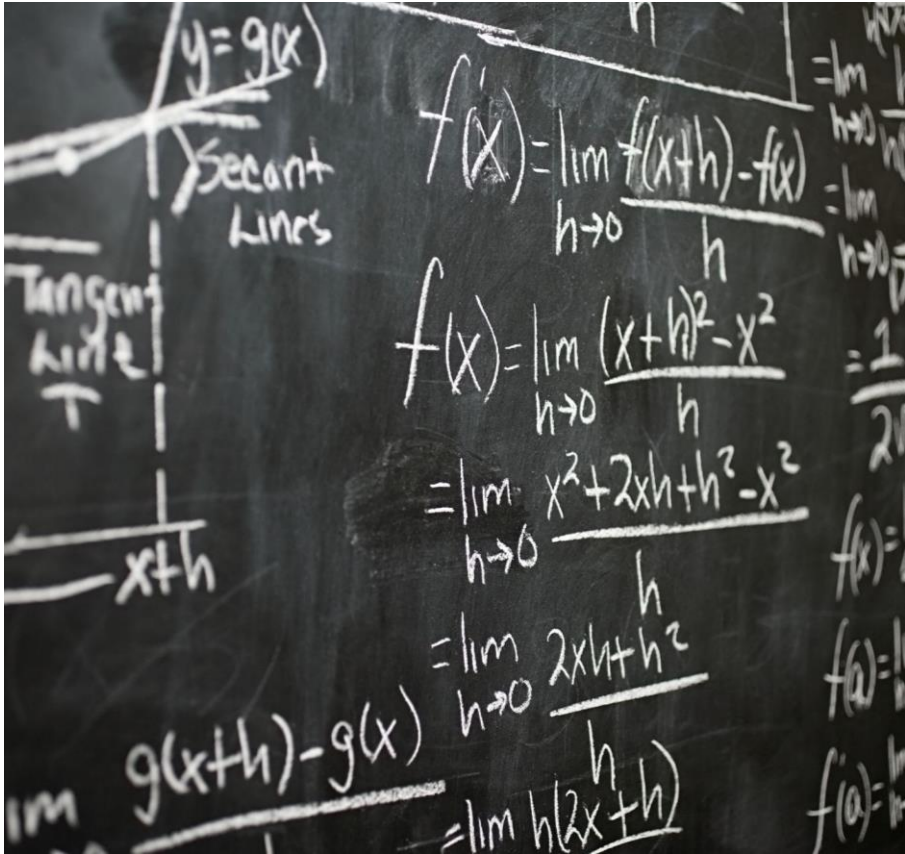 y=g(x)
Secant
Lines
Tangent
Line
T
x+h
g(x+h)-g(x)
h
f'(x)=lim f(x+h)-f(x)
h→0 h
f(x)=lim (x+h)²-x²
h→0 h
=lim x²+2xh+h²-x²
h→0 h
=lim 2xh+h²
h→0 h
=lim h(2x+h)
=lim
h→0
=lim
h→0
=1
2
f(x)=
f(a)=
f'(a)=